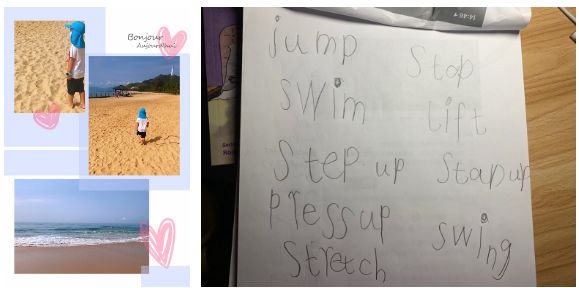 Bonjour
Aujourd'hui
jump
swim
Step up
Pressup
Stretch
Stop
Lift
Stapup
swing